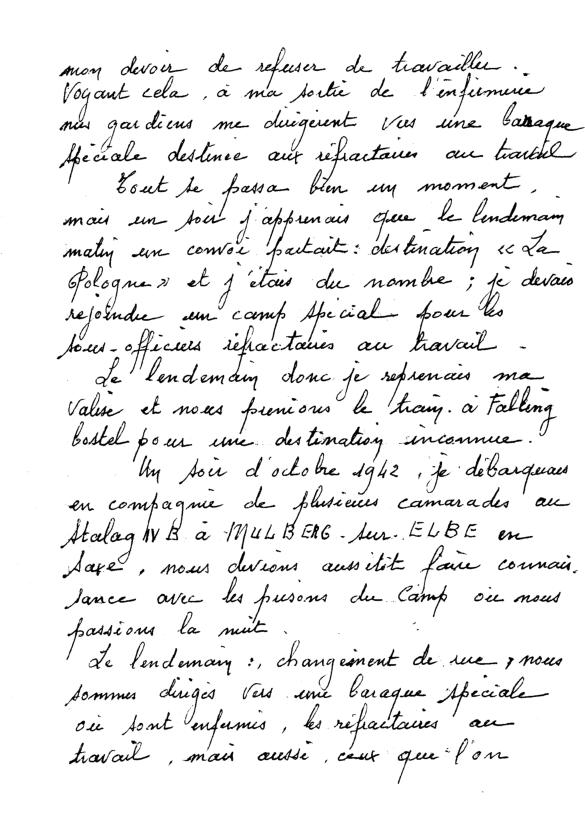 mon devoir de refuser de travailler.
Voyant cela, à ma sortie de l'infirmerie
nos gardiens me dirigèrent vers une baraque
spéciale destinée aux réfractaires au travail
Tout se passa bien un moment,
mais un soir j'apprenais que le lendemain
matin un convoi partait : destination « La
Pologne » et j'étais du nombre ; je devais
rejoindre un camp spécial pour les
sous-officiers réfractaires au travail -
Le lendemain donc je reprenais ma
valise et nous prenions le train à Falling
bostel pour une destination inconnue.
Un soir d'octobre 1942, je débarquais
en compagnie de plusieurs camarades au
Stalag IV B à MULBERG-sur-ELBE en
Saxe, nous devions aussitôt faire connais-
sance avec les prisons du camp où nous
passions la nuit.
Le lendemain :, changement de rue, nous
sommes dirigés vers une baraque spéciale
où sont enfermés, les réfractaires au
travail, mais aussi, ceux que l'on